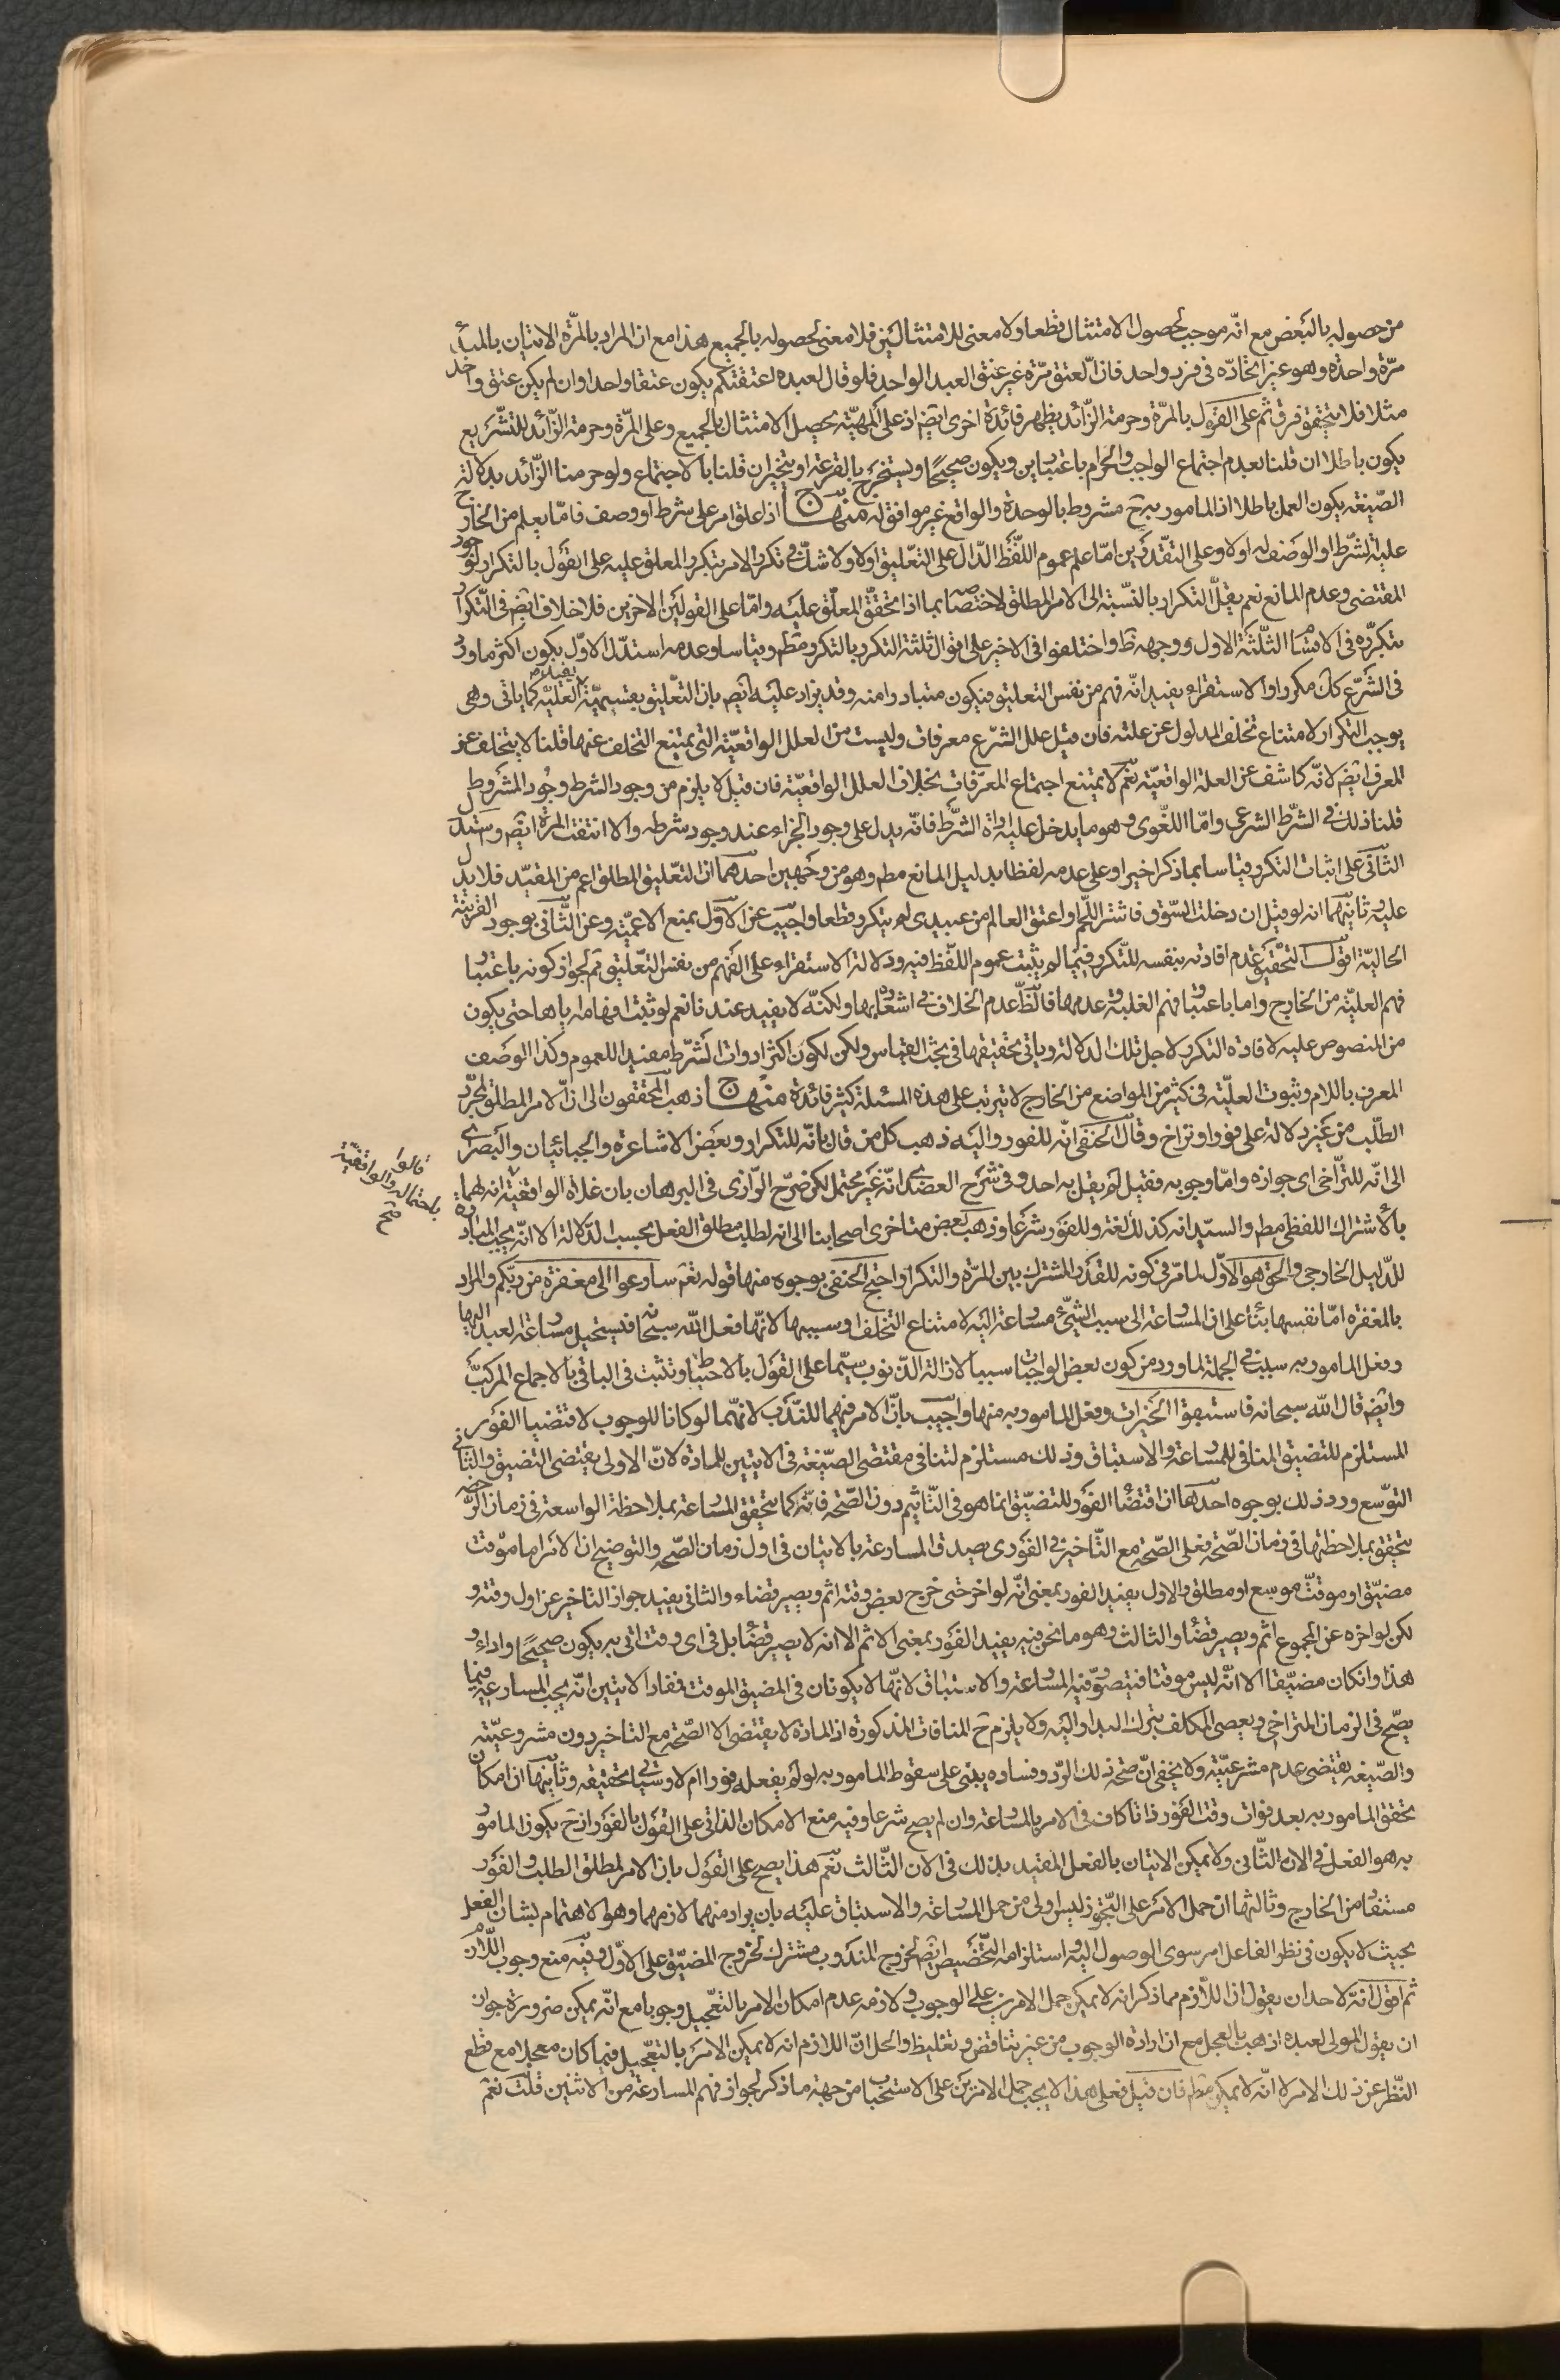 من حصوله بالبعض مع انّه موجب لحصول الامتثال قطعا ولا معنى للامتثالين فلا معنى لحصوله بالجميع هذا مع ان المراد بالمرّة الاتيان بالمبدأ
مرّة واحدة وهو غير ايجاده فى فرد واحد فان العتق مرّة غير عتق العبد الواحد فلو قال لعبده اعتقتكم يكون عتقا واحدا وان لم يكن عتق واحد
مثلا فلا يتحقق فرق ثم على القول بالمرّة وحرمة الزّائد يظهر فائدة اخرى ايض اذ على المهيّة يحصل الامتثال بالجميع وعلى المرّة وحرمة الزّائد للتشريع
يكون باطلا ان قلنا بعدم اجتماع الواجب والحرام باعتبارين ويكون صحيحا ويستخرج بالقرعة او يتخير ان قلنا بالاجتماع ولو حرمنا الزّائد بدلالة
الصّيغة يكون العمل باطلا اذ المامور به ح مشروط بالوحدة والواقع غير موافق له منهاج اذا علق امر على شرط او وصف فامّا يعلم من الخارج
علية الشّرط او الوصف له اولا وعلى التقديرين امّا علم عموم اللّفظ الدّال على التعليق اولا ولا شكّ فى تكرر الامر بتكرر المعلق عليه على القول بالتكرار لوجود
المقتضى وعدم المانع نعم يقلّ التكرار بالنسّبة الى الامر المطلق لاختصاصه بما اذا تحقق المعلّق عليه وامّا على القولين الاخرين فلا خلاف ايض فى التكرار
بتكرّره فى الاقسام الثلثة الاول ووجهه ظ واختلفوا فى الاخير على اقوال ثلثة التكرر بالتكرر مط وقياسا وعدمه استدل الاوّل بكون اكثر ما ورد
فى الشّرع كك مكررا والاستقراء يفيد انّه فهم من نفس التعليق فيكون متبادرا منه وقد يزاد عليه ايض بان التّعليق بقسيميّه يفيد العليّة كما ياتى وهى
يوجب التكرار لامتناع تخلف المدلول عن علته فان قيل علل الشرّع معرفات وليست من العلل الواقعيّة التى يمتنع التخلف عنها قلنا لا يتخلف عن
المعرف ايض لانّه كاشف عن العلة الواقعيّة نعم لا يمتنع اجتماع المعرّفات بخلاف العلل الواقعيّة فان قيل لا يلزم من وجود الشرط وجود المشروط
قلنا ذلك فى الشرّط الشرعى وامّا اللّغوى وهو ما يدخل عليه اداة الشرّط فانّه يدل على وجود الجزاء عند وجود شرطه والا انتفت المرّة ايض واستدل
الثّانى على اثبات التكرر قياسا بما ذكر اخيرا وعلى عدمه لفظا بدليل المانع مط وهو من وجهين احدهما ان التعليق المطلق اعم من المقيّد فلا يدل
عليه وثانيهما انه لو قيل ان دخلت السّوق فاشتر اللّحم او اعتق العالم من عبيدى لم يتكرر قطعا واجيب عن الاوّل بمنع الاعميّة وعن الثّانى بوجود القرينة
الحاليّة اقول التحقيق عدم افادته بنفسه للتّكرر فيما لم يثبت عموم اللّفظ فيه ودلالة الاستقراء على الفهم من نفس التعليق مم لجواز كونه باعتبار
فهم العليّة من الخارج واما باعتبار فهم الغلبة وعدمها فالظّ عدم الخلاف فى اشعاره بها ولكنّه لا يفيد عندنا نعم لو ثبت افهامه اياها حتى يكون
من المنصوص عليه لافاده التكرر لاجل تلك الدلالة وياتى تحقيقها فى بحث القياس ولكن لكون اكثر ادوات الشّرط مفيدا للعموم وكذا الوصف
المعرف باللام وثبوت العليّة فى كثير من المواضع من الخارج لا يترتب على هذه المسئلة كثير فائدة منهاج ذهب المحققون الى انّ الامر المطلق لمجرّد
الطّلب من غير دلالة على فور او تراخ وقال الحنفى انّه للفور واليه ذهب كل من قال بانّه للتكرار وبعض الاشاعرة والجبائيان والبصرى
الى انّه للتراخى اى جوازه وامّا وجوبه فقيل لم يقل به احد وفى شرح العضدى انّه غير محتمل لكن ضرّح الرّازى فى البرهان بان غلاة الواقفية انه لهما
بالاشتراك اللفظى مط والسيّد انه كذلك لغة وللفور شرعا وذهب بعض متاخرى اصحابنا الى انه لطلب مطلق الفعل بحسب الدّلالة الا انّه يجب المبادرة
للدّليل الخارجى والحق هو الاوّل لما مرّ فى كونه للقدر المشترك بين المرّة والتكرار واحتج الحنفى بوجوه منها قوله تعم سارعوا الى مغفرة من ربّكم والمراد
بالمغفرة امّا نفسها بناء على ان المسارعة الى سبب الشّئ مسارعة اليه لامتناع التخلف او سببها لانّها فعل الله سبحانه فيستحيل مسارعة العبد اليها
وفعل المامور به سبب فى الجملة لما ورد من كون بعض الواجبات سببا لازالة الذّنوب سيّما على القول بالاحباط وتثبت فى الباقى بالاجماع المركبّ
وايض قال الله سبحانه فاستبقوا الخيرات وفعل المامور به منها واجيب بانّ الامر فيهما للندّب لانهّما لو كانا للوجوب لاقتضيا الفور
المستلزم للتضييق المنافى للمسارعة والاستباق وذلك مستلزم لتنافى مقتضى الصّيغة فى الايتين للمادة لانّ الاولى يقتضى التضييق والثّانى
التوّسع ورد ذلك بوجوه احدها ان اقتضاء الفور للتضيّق انما هو فى التّاثيم دون الصّحة فانّه كما يتحقق المسارعة بملاحظة الواسعة فى زمان الرّخصه
يتحقق بملاحظتها فى زمان الصّحة فعلى الصّحة مع التّاخير فى الفورى يصدق المسارعة بالاتيان فى اول زمان الصّحة والتوضيح ان الامر اما موّقت
مضيّق او موقتّ موسع او مطلق والاول يفيد الفور بمعنى انّه لو اخر حتى خرج بعض وقته اثم ويصير قضاء والثانى يفيد جواز التاخير عن اول وقته و
لكن لو اخره عن المجموع اثم ويصير قضاء والثالث وهو ما نحن فيه يفيد الفور بمعنى الاثم الا انه لا يصير قضاء بل فى اى وقت اتى به يكون صحيحا واداء و
هذا وانكان مضيّقا الا انّه ليس موقتا فيتصوّر فيه المسارعة والاستباق لانّها لا يكونان فى المضيق الموقت فمفاد الايتين انّه يجب المسارعة فيما
يصّح فى الزمان المتراخى ويعصى المكلف بترك البدار اليه ولا يلزم ح المنافات المذكورة اذ المادة لا يقتضى الا الصّحة مع التاخير دون مشروعيّته
والصّيغة يقتضى عدم مشرعيّته ولا يخفى انّ صحّة ذلك الرّد وفساده يبتنى على سقوط المامور به لو لم يفعله فورا ام لا وسيأتى تحقيقه وثانيها ان امكان
تحقق المامور به بعد فوات وقت الفور ذاتا كاف فى الامر بالمسارعة وان لم يصح شرعا وفيه منع الامكان الذاتى على القول بالفور اذ ح يكون المامور
به هو الفعل فى الان الثّانى ولا يمكن الاتيان بالفعل المقيد بذلك فى الان الثّالث نعم هذا يصح على القول بان الامر لمطلق الطلب والفور
مستفاد من الخارج وثالثها ان حمل الامر على التّجوز ليس اولى من حمل المسارعة والاستباق عليه بان يراد منهما لازمهما وهو الاهتمام بشان الفعل
بحيث لا يكون فى نظر الفاعل امر سوى الوصول اليه واستلزامه التّخصيص ايض لخروج المندوب مشترك لخروج المضيّق على الاوّل وفيه منع وجوب اللّازم
ثم اقول انّه لاحد ان يقول ان اللاّزم مما ذكر انه لا يمكن حمل الامرين على الوجوب ولازمه عدم امكان الامر بالتعّجيل وجوبا مع انّه يمكن ضرورة جواز
ان يقول المولى لعبده اذهب بالعجل مع ارادة الوجوب من غير تناقض وتغليظ والحل انّ اللازم انه لا يمكن الامر بالتعّجيل فيما كان معجلا مع قطع
النّظر عن ذلك الامر لا انّه لا يمكن مط فان قيل فعلى هذا لا يجب حمل الامرين على الاستحباب من جهة ما ذكر لجواز فهم المسارعة من الاثنين قلت نعم
قالوا
باحتماله والواقفيّة
صح